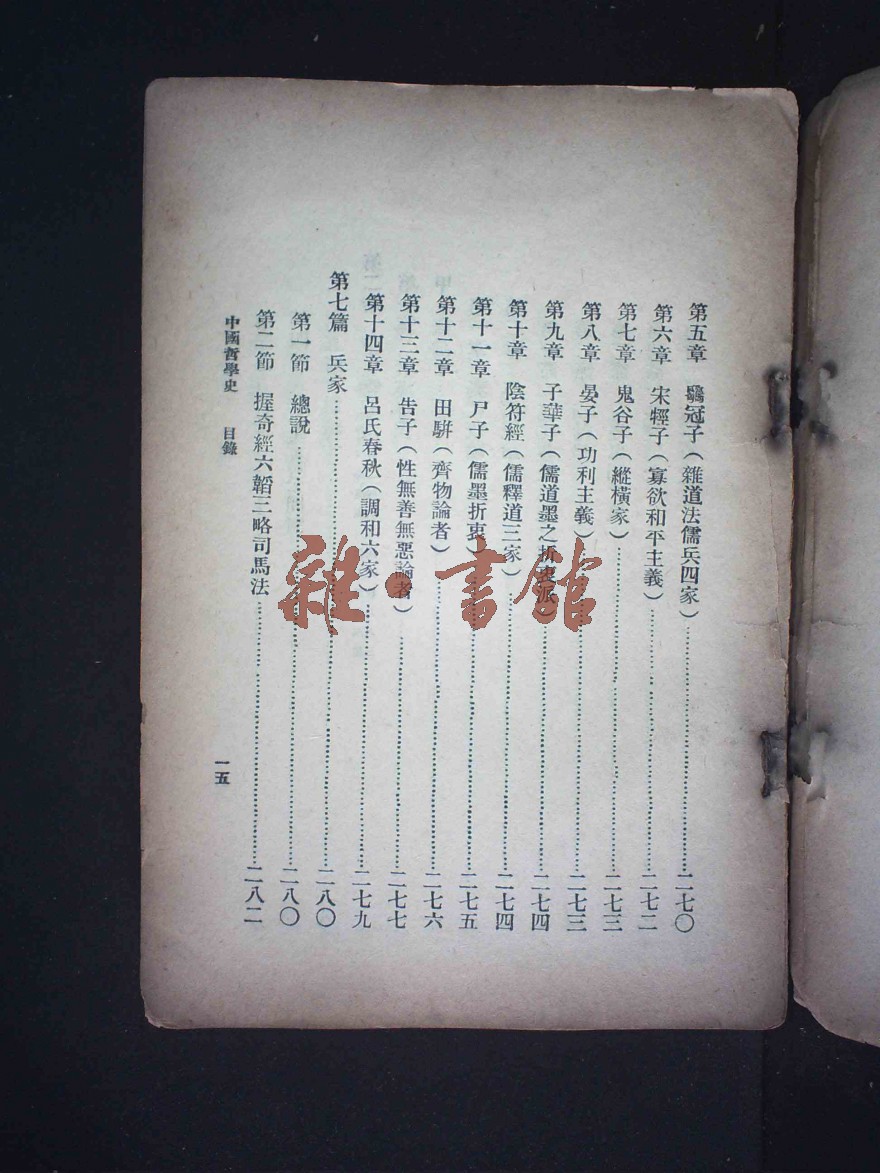 第五章 鶡冠子（雜道法儒兵四家）……二七〇
第六章 宋牼子（寡欲和平主義）……二七二
第七章 鬼谷子（縱橫家）……二七三
第八章 晏子（功利主義）……二七三
第九章 子華子（儒道墨之折衷派）……二七四
第十章 陰符經（儒釋道三家）……二七四
第十一章 尸子（儒墨折衷）……二七五
第十二章 田駢（齊物論者）……二七六
第十三章 告子（性無善無惡論者）……二七七
第十四章 呂氏春秋（調和六家）……二七九
第七篇 兵家……二八〇
第一節 總說……二八〇
第二節 握奇經六韜三略司馬法……二八二
中國哲學史 目錄 一五
雜·書館